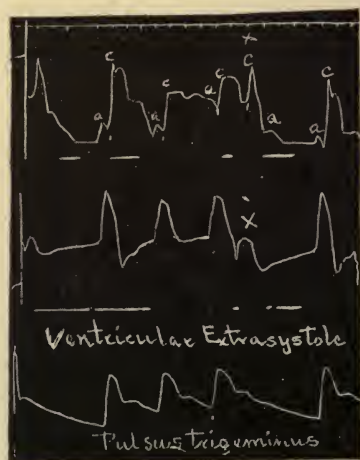 x
c c c c C
a a a a a
x
Ventricular Extrasystole
Pulsus trigeminus